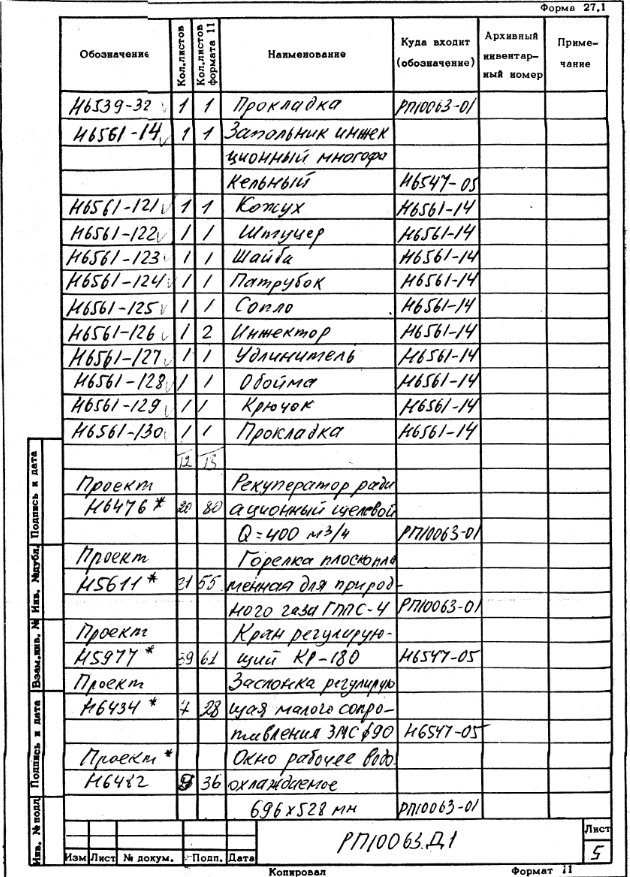 Форма 27.1
Обозначение Кол.листов Кол.листов формата 11 Наименование Куда входит (обозначение) Архивный инвентарный номер Примечание
Н6539-32 1 1 Прокладка РП10063-01
Н6561-14 1 1 Запольник инжек
ционный многофа
кельный Н6547-05
Н6561-121 1 1 Кожух Н6561-14
Н6561-122 1 1 Штуцер Н6561-14
Н6561-123 1 1 Шайба Н6561-14
Н6561-124 1 1 Патрубок Н6561-14
Н6561-125 1 1 Сопло Н6561-14
Н6561-126 1 2 Инжектор Н6561-14
Н6561-127 1 1 Удлинитель Н6561-14
Н6561-128 1 1 Обойма Н6561-14
Н6561-129 1 1 Крючок Н6561-14
Н6561-130 1 1 Прокладка Н6561-14
12 13
Проект Рекуператор ради
Н6476* 20 80 ационный щелевой
Q=400 м3/ч РП10063-01
Проект Горелка плоскопла
Н5611* 21 55 менная для природ-
ного газа ГППС-4 РП10063-01
Проект Кран регулирую-
Н5977* 39 61 щий КР-180 Н6547-05
Проект Заслонка регулирую
Н6434* 7 28 щая малого сопро-
тивления ЗМС ϕ90 Н6547-05
Проект* Окно рабочее водо
36 охлаждаемое
696х528 мм РП10063-01
РП10063.Д1
Лист
5
Изм Лист № докум. Подп. Дата
Копировал Формат 11
Подпись и дата
Инв. №дубл.
Взам.инв. №
Подпись и дата
Инв. № подл